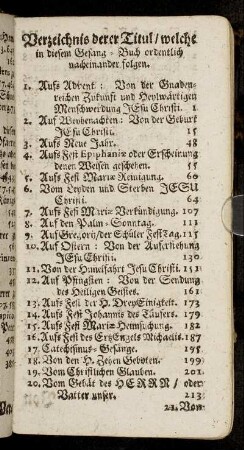 Verzeichnis derer Titul/ welche
in diesem Gesang-Buch ordentlich
nacheinander folgen.
1. Aufs Advent: Von der Gnaden-
reichen Zukunft und Heylwärtigen
Menschwerdung JEsu Christi. 1
2. Auf Weyhenachten: Von der Geburt
JEsu Christi. 15
3. Aufs Neue Jahr. 48
4. Aufs Fest Epiphaniæ oder Erscheinung
denen Weisen geschehen. 55
5. Aufs Fest Mariæ Reinigung. 60
6. Vom Leyden und Sterben JESU
Christi. 64
7. Aufs Fest Mariæ Verkündigung. 107
8. Auf den Palm-Sonntag. 111
9. Auf Gregorij/der Schüler FestTag. 115
10. Auf Ostern: Von der Auferstehung
JEsu Christi. 130
11. Von der Himelfahrt Jesu Christi. 151
12. Auf Pfingsten: Von der Sendung
des Heiligen Geistes. 161
13. Aufs Fest der H. Drey Einigkeit. 173
14. Aufs Fest Johannis des Täufers. 179
15. Aufs Fest Mariæ Heimsuchung. 182
16. Auf Fest des ErtzEngels Michaelis. 187
17. Catechismus-Gesänge. 195
18. Von den H. Zehen Geboten. 199
19. Vom Christlichen Glauben. 201
20. Vom Gebät des HERRN/ oder
Vatter unser. 213
21. Von